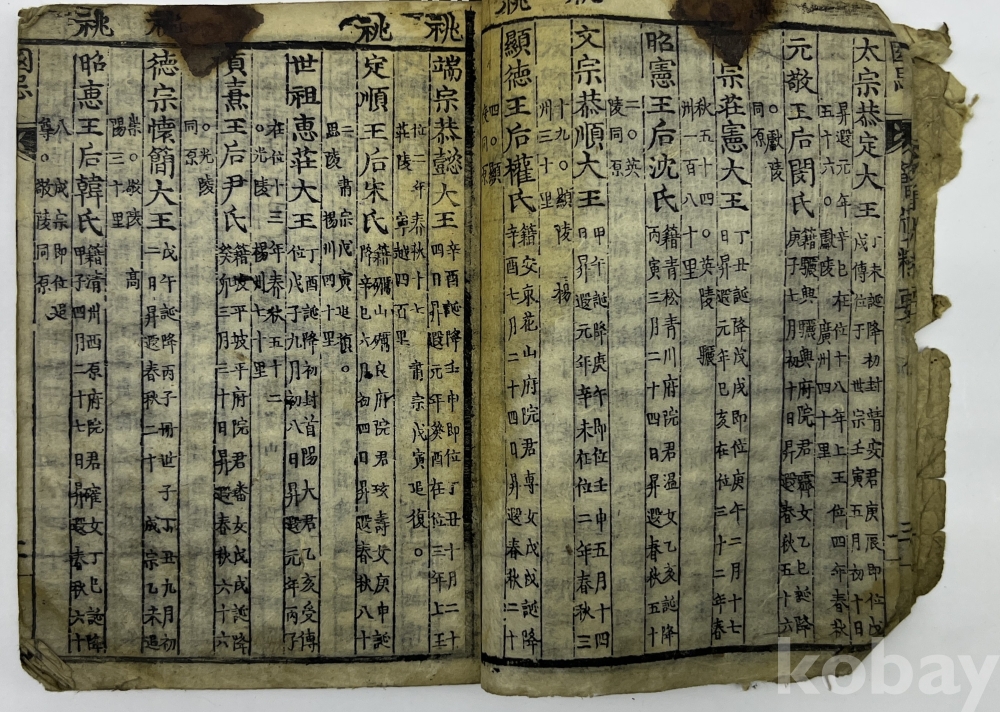 祧
太宗恭定大王
丁未誕降初封靖安君庚辰即位
戊戌傳位于世宗壬寅五月初十日
昇遐元年辛巳在位十八年上王位四年春秋
五十六。獻陵 廣州四十里
元敬王后閔氏
籍驪興驪興府院君霽女乙巳誕降
庚子七月初十日昇遐春秋五十六
。獻陵
同原
宗莊憲大王
丁丑誕降戊戌即位庚午二月十七
日昇遐元年己亥在位三十二年春
秋五十四。英陵 驪
州一百八十里
昭憲王后沈氏
籍青松青川府院君溫女乙亥誕降
丙寅三月二十四日昇遐春秋五十
二。英
陵同原
文宗恭順大王
甲午誕降庚午即位壬申五月十四
日昇遐元年辛未在位二年春秋三
十九。顯陵 楊
州三十里
顯德王后權氏
籍安東花山府院君專女戊戌誕降
辛酉七月二十四日昇遐春秋二十
四。顯
陵同原
祧
端宗恭懿大王
辛酉誕降壬申即位丁丑十月二十
四日昇遐元年癸酉在位三年上王
位二年春秋十七 肅宗戊寅追復。
莊陵 寧越四百里
祧
定順王后宋氏
籍礪山礪良府院君玹壽女庚申誕
降辛巳六月初四日昇遐春秋八十
二 肅宗戊寅追復。
思陵 楊州四十里
世祖惠莊大王
丁酉誕降初封首陽大君乙亥受傳
位戊子九月初八日昇遐元年丙子
在位十三年春秋五十二
。光陵 楊州七十里
貞熹王后尹氏
籍坡平坡平府院君璠女戊戌誕降
癸卯三月三十日昇遐春秋六十六
。光陵
同原
祧
德宗懷簡大王
戊午誕降丙子冊世子丁丑九月初
二日昇遐春秋二十 成宗乙未追
崇。敬陵 高
陽三十里
祧
昭惠王后韓氏
籍清州西原府院君確女丁巳誕降
甲子四月二十七日昇遐春秋六十
八 成宗即位追
尊。敬陵同原
國忌
kobay